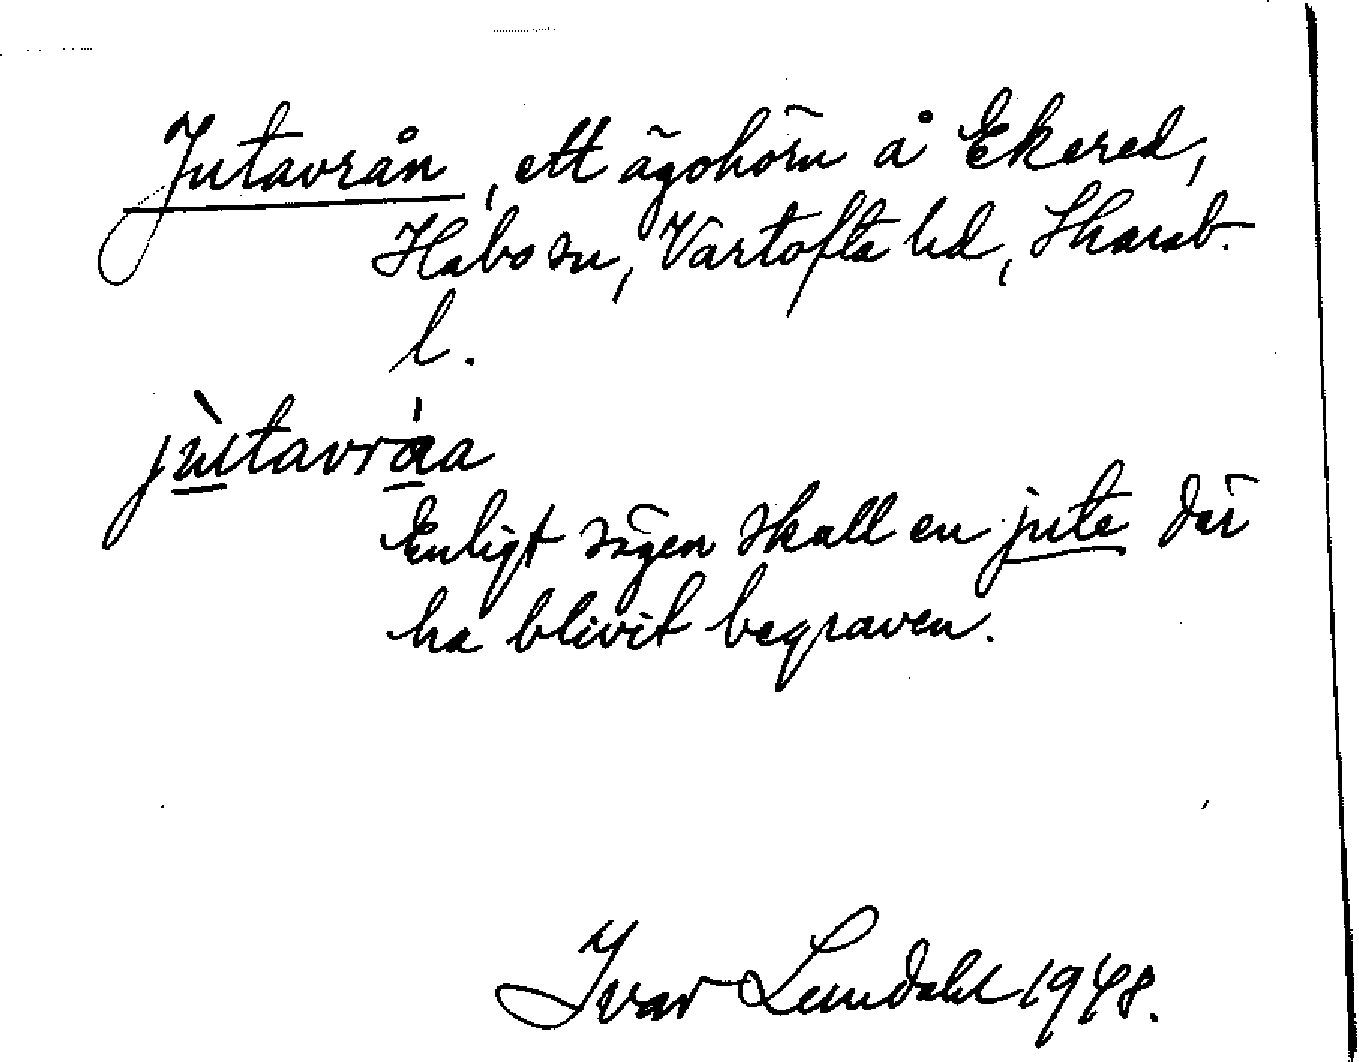 Jutavrån, ett ägohörn å Ekered,
Habo sn, Vartofta hd, Skarab.
l.
jùtavráa
Enligt sägen skall en jute där
ha blivit begraven.
Ivar Lundahl 1948.